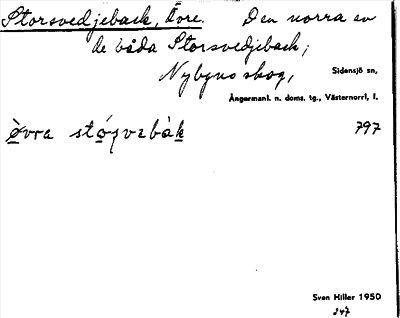 Storsvedjeback, Övre. Den norra av
de båda Storsvedjeback;
Nybyns skog,
Sidensjö sn,
Ångermanl. n. doms. tg., Västernorrl. l.
797
Sven Hiller 1950
247